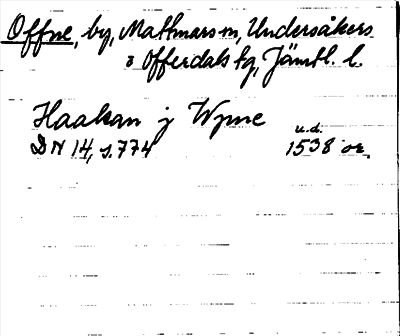 Offne, by, Mattmars sn, Undersåkers
o Offerdals tg, Jämtl. l.
Haakan j Wpne
u.d.
DN 14, s. 774 1538 or.